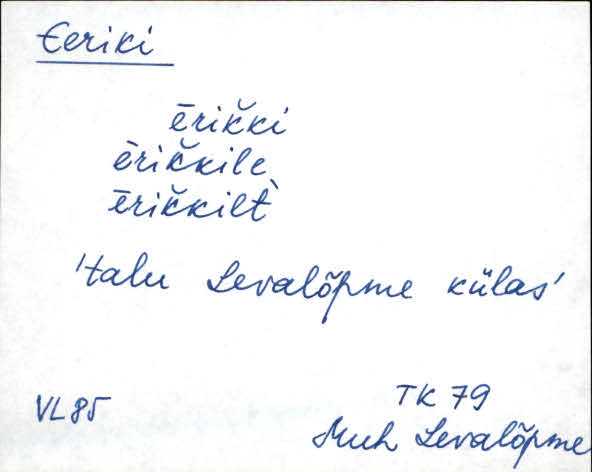 Eeriki
ērik̆ki
ērik̆kile
ērik̆kilt̀
'talu Levalõpme külas'
VL 85
TK 79
Muh Levalõpme